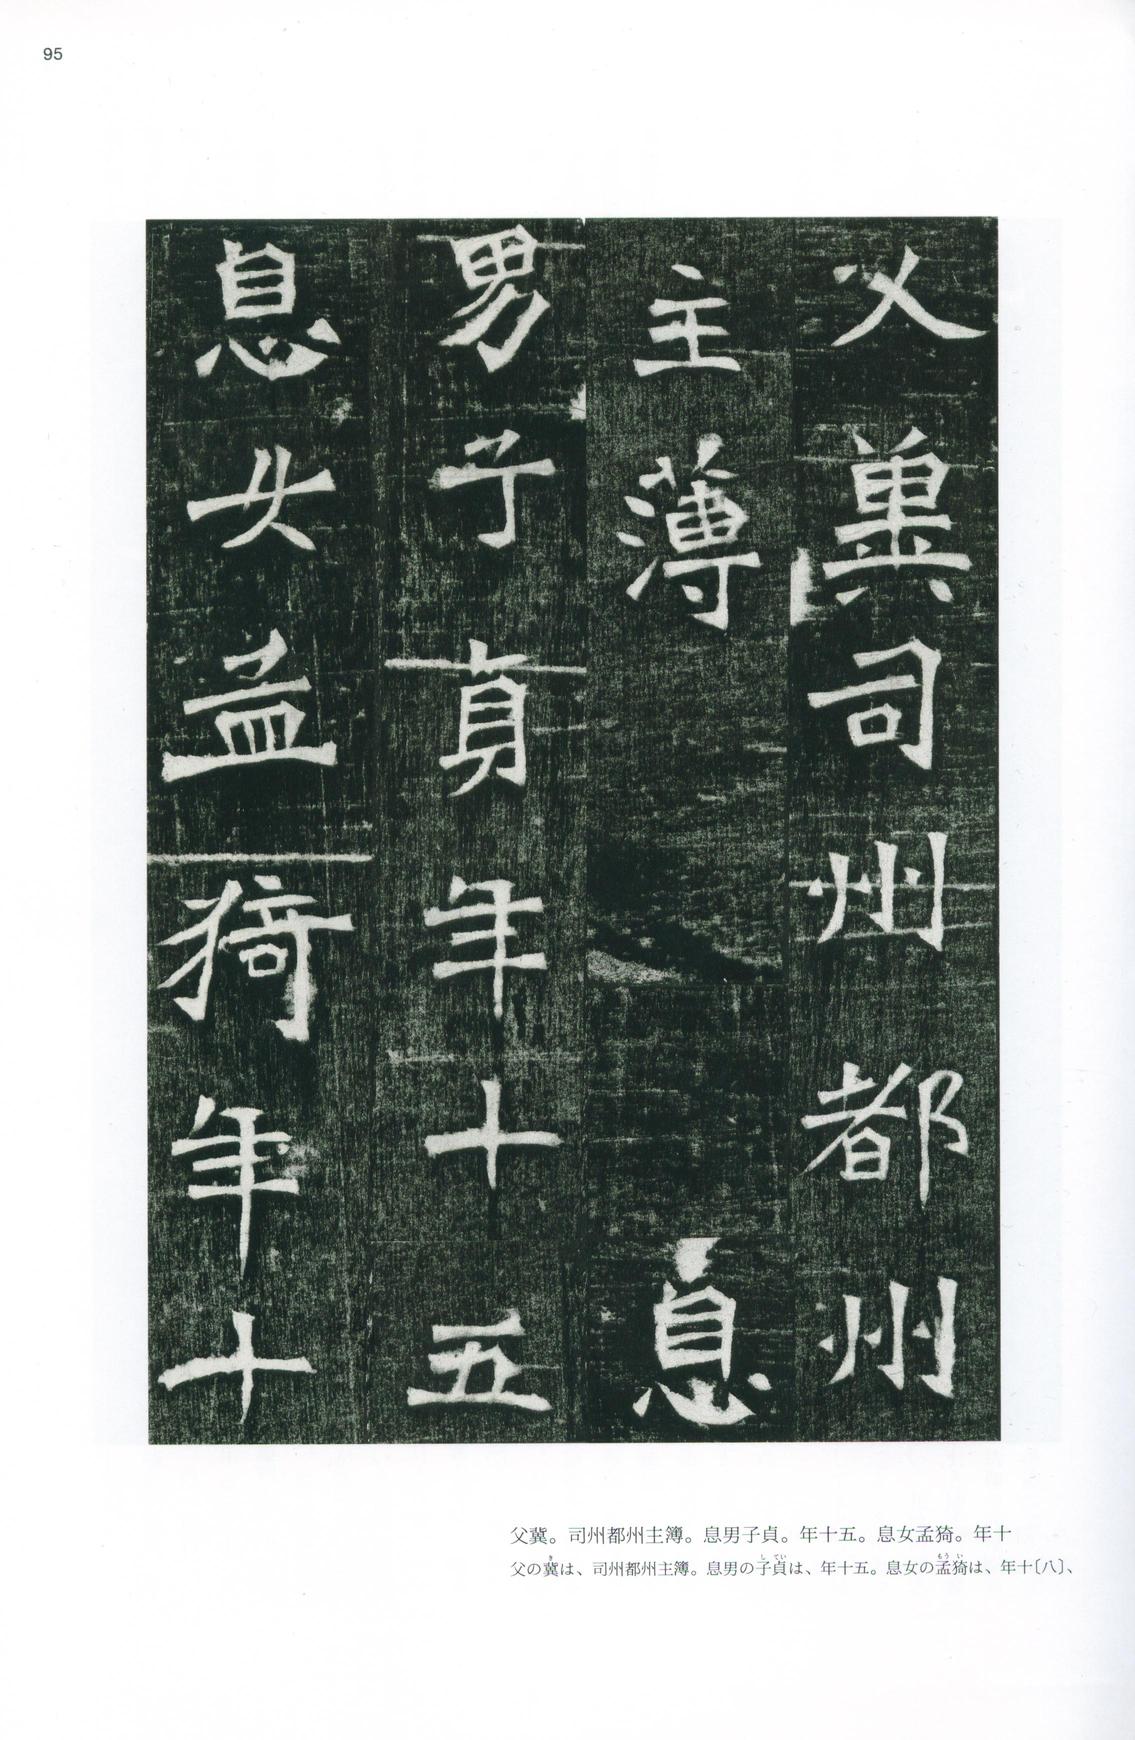 95
父冀司州都州
主簿息
男子貞年十五
息女孟猗年十
父冀。司州都州主簿。息男子貞。年十五。息女孟猗。年十
父の冀は、司州都州主簿。息男の子貞は、年十五。息女の孟猗は、年十〔八〕、